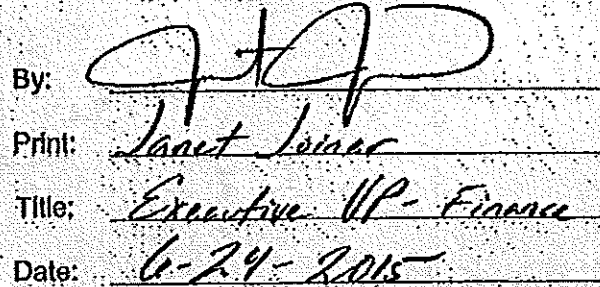 By:
Print: Janet Joiner
Title: Executive VP - Finance
Date: 6-24-2015